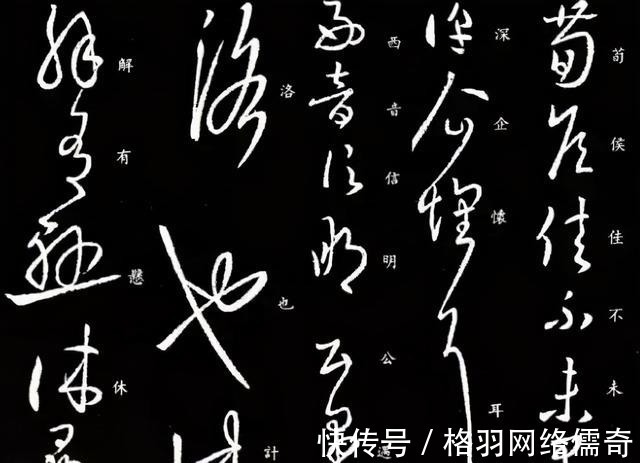 荀侯佳不未
深企懷耳
西音信明公過
洛也計
解有懸休
快传号／格羽网络儒奇